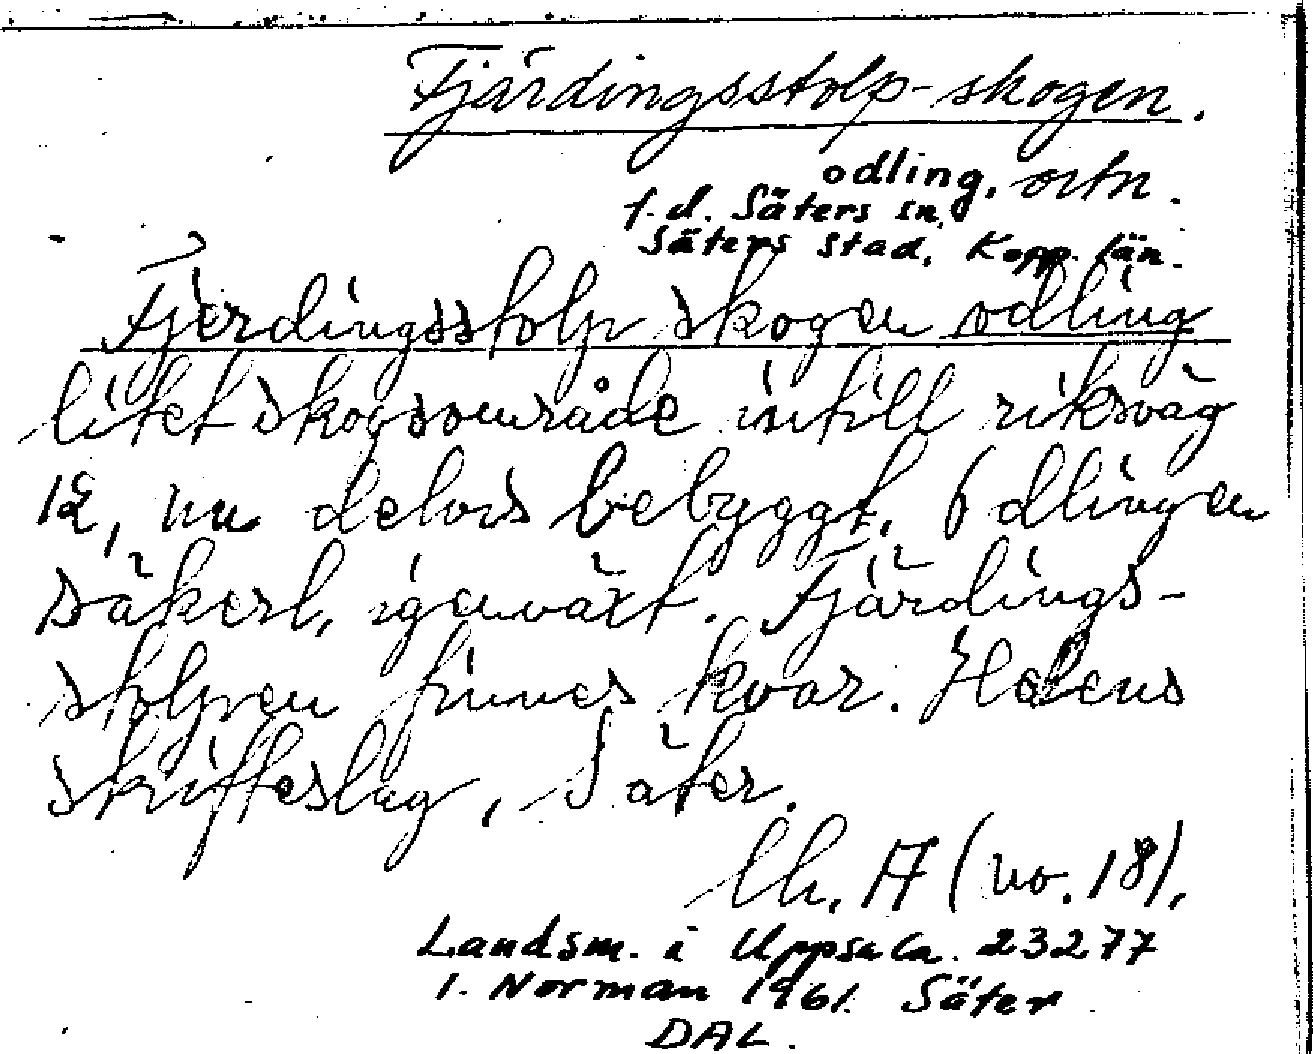 Fjärdingsstolp-skogen.
odling, ortn.
f.d. Säters sn,
Säters stad, Kopp. län.
Fjerdingsstolp skogen odling
litet skogsområde intill riksväg
12, nu delvis bebyggt. Odlingen
säkerl. igenväxt. Fjärdings-
stolpen finnes kvar. Helens
skifteslag, Säter.
lh. 17 (no. 18).
Landsm. i Uppsala. 23277
I. Norman 1961. Säter
DAL.